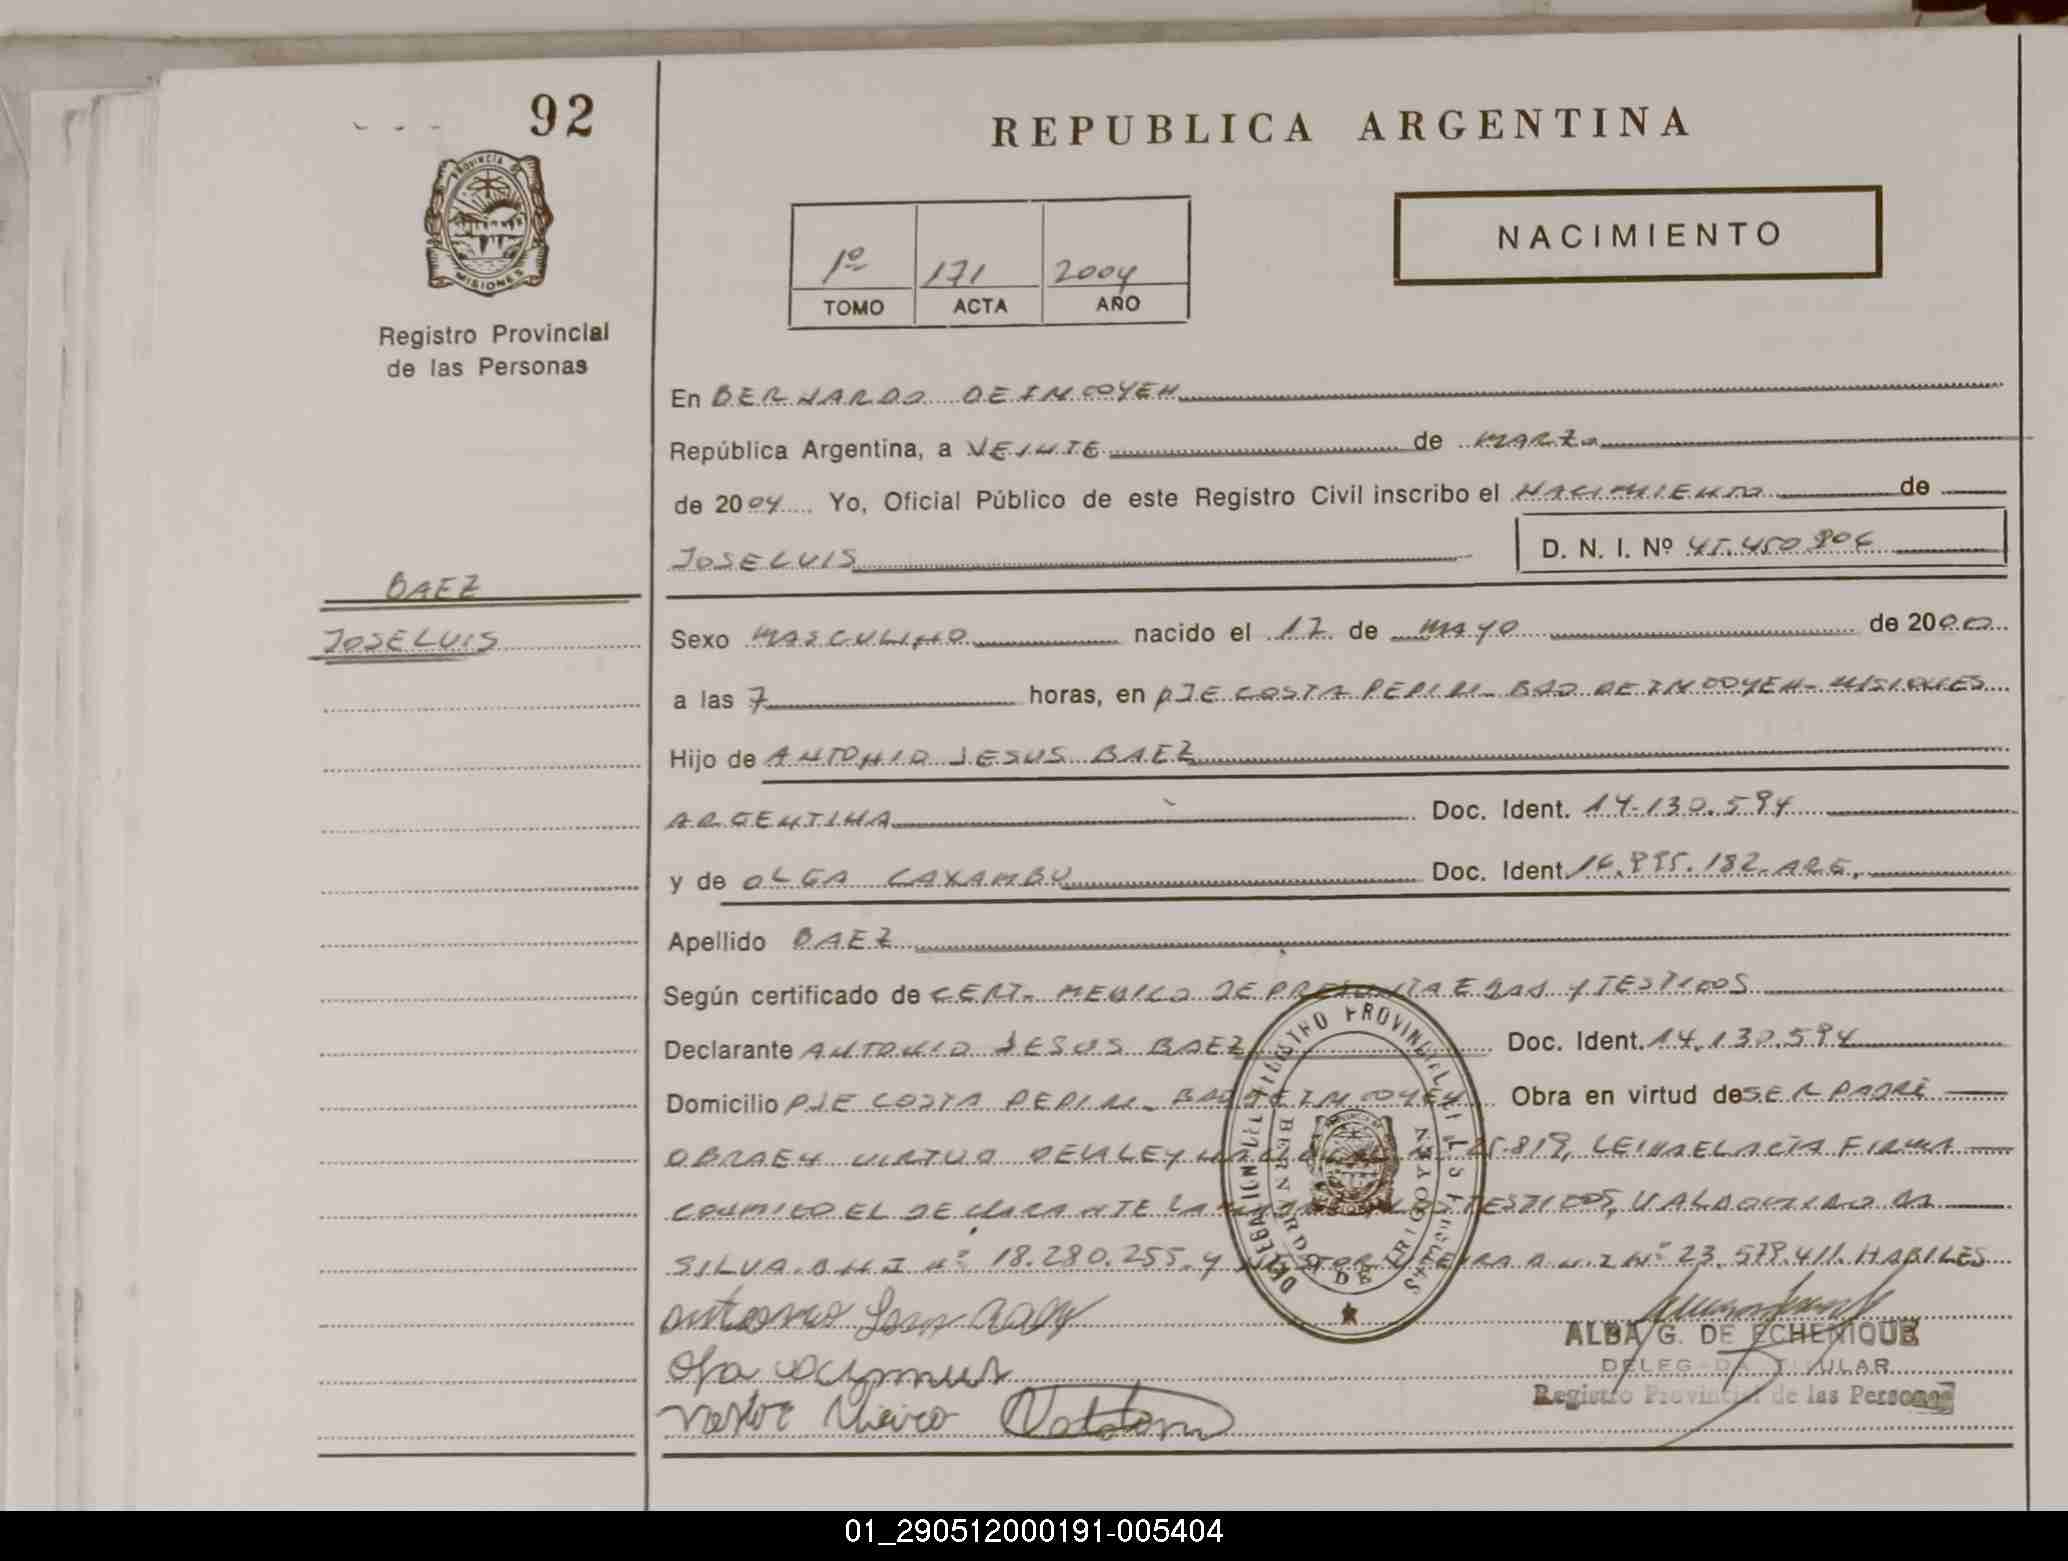 92
REPUBLICA ARGENTINA
PROVINCIA DE
MISIONES
Registro Provincial
de las Personas
NACIMIENTO
1º 171 2004
TOMO ACTA AÑO
En BERNARDO DE IRIGOYEN
República Argentina, a VEINTE de MARZO
de 2004 Yo, Oficial Público de este Registro Civil inscribo el NACIMIENTO de
JOSE LUIS D. N. I. Nº 45.450.806
BAEZ
JOSE LUIS
Sexo MASCULINO nacido el 17 de MAYO de 2000
a las 7 horas, en PJE COSTA PEPIRI - BDO DE IRIGOYEN - MISIONES
Hijo de ANTONIO JESUS BAEZ
ARGENTINA Doc. Ident. 14.130.594
y de OLGA CAXAMBU Doc. Ident. 16.895.182. ARG.
Apellido BAEZ
Según certificado de CERT. MEDICO DE PRESUNTA EDAD Y TESTIGOS
Declarante ANTONIO JESUS BAEZ Doc. Ident. 14.130.594
Domicilio PJE COSTA PEPIRI - BDO DE IRIGOYEN Obra en virtud de SER PADRE
OBRA EN VIRTUD DE LA LEY NACIONAL 25.819, LEIDA EL ACTA FIRMA
CONMIGO EL DECLARANTE LA TESTIGOS, VALDOMIRO DA
SILVA. D.N.I nº 18.280.255. y NESTOR VIEIRA D.N.I Nº 23.579.411. HABILES
DELEGACION REGISTRO PROVINCIAL DE LAS PERSONAS
BERNARDO DE IRIGOYEN
Antonio Jesus Baez
ALBA G. DE ECHENIQUE
DELEGADA TITULAR
Registro Provincial de las Personas
Nestor Vieira
01_290512000191-005404